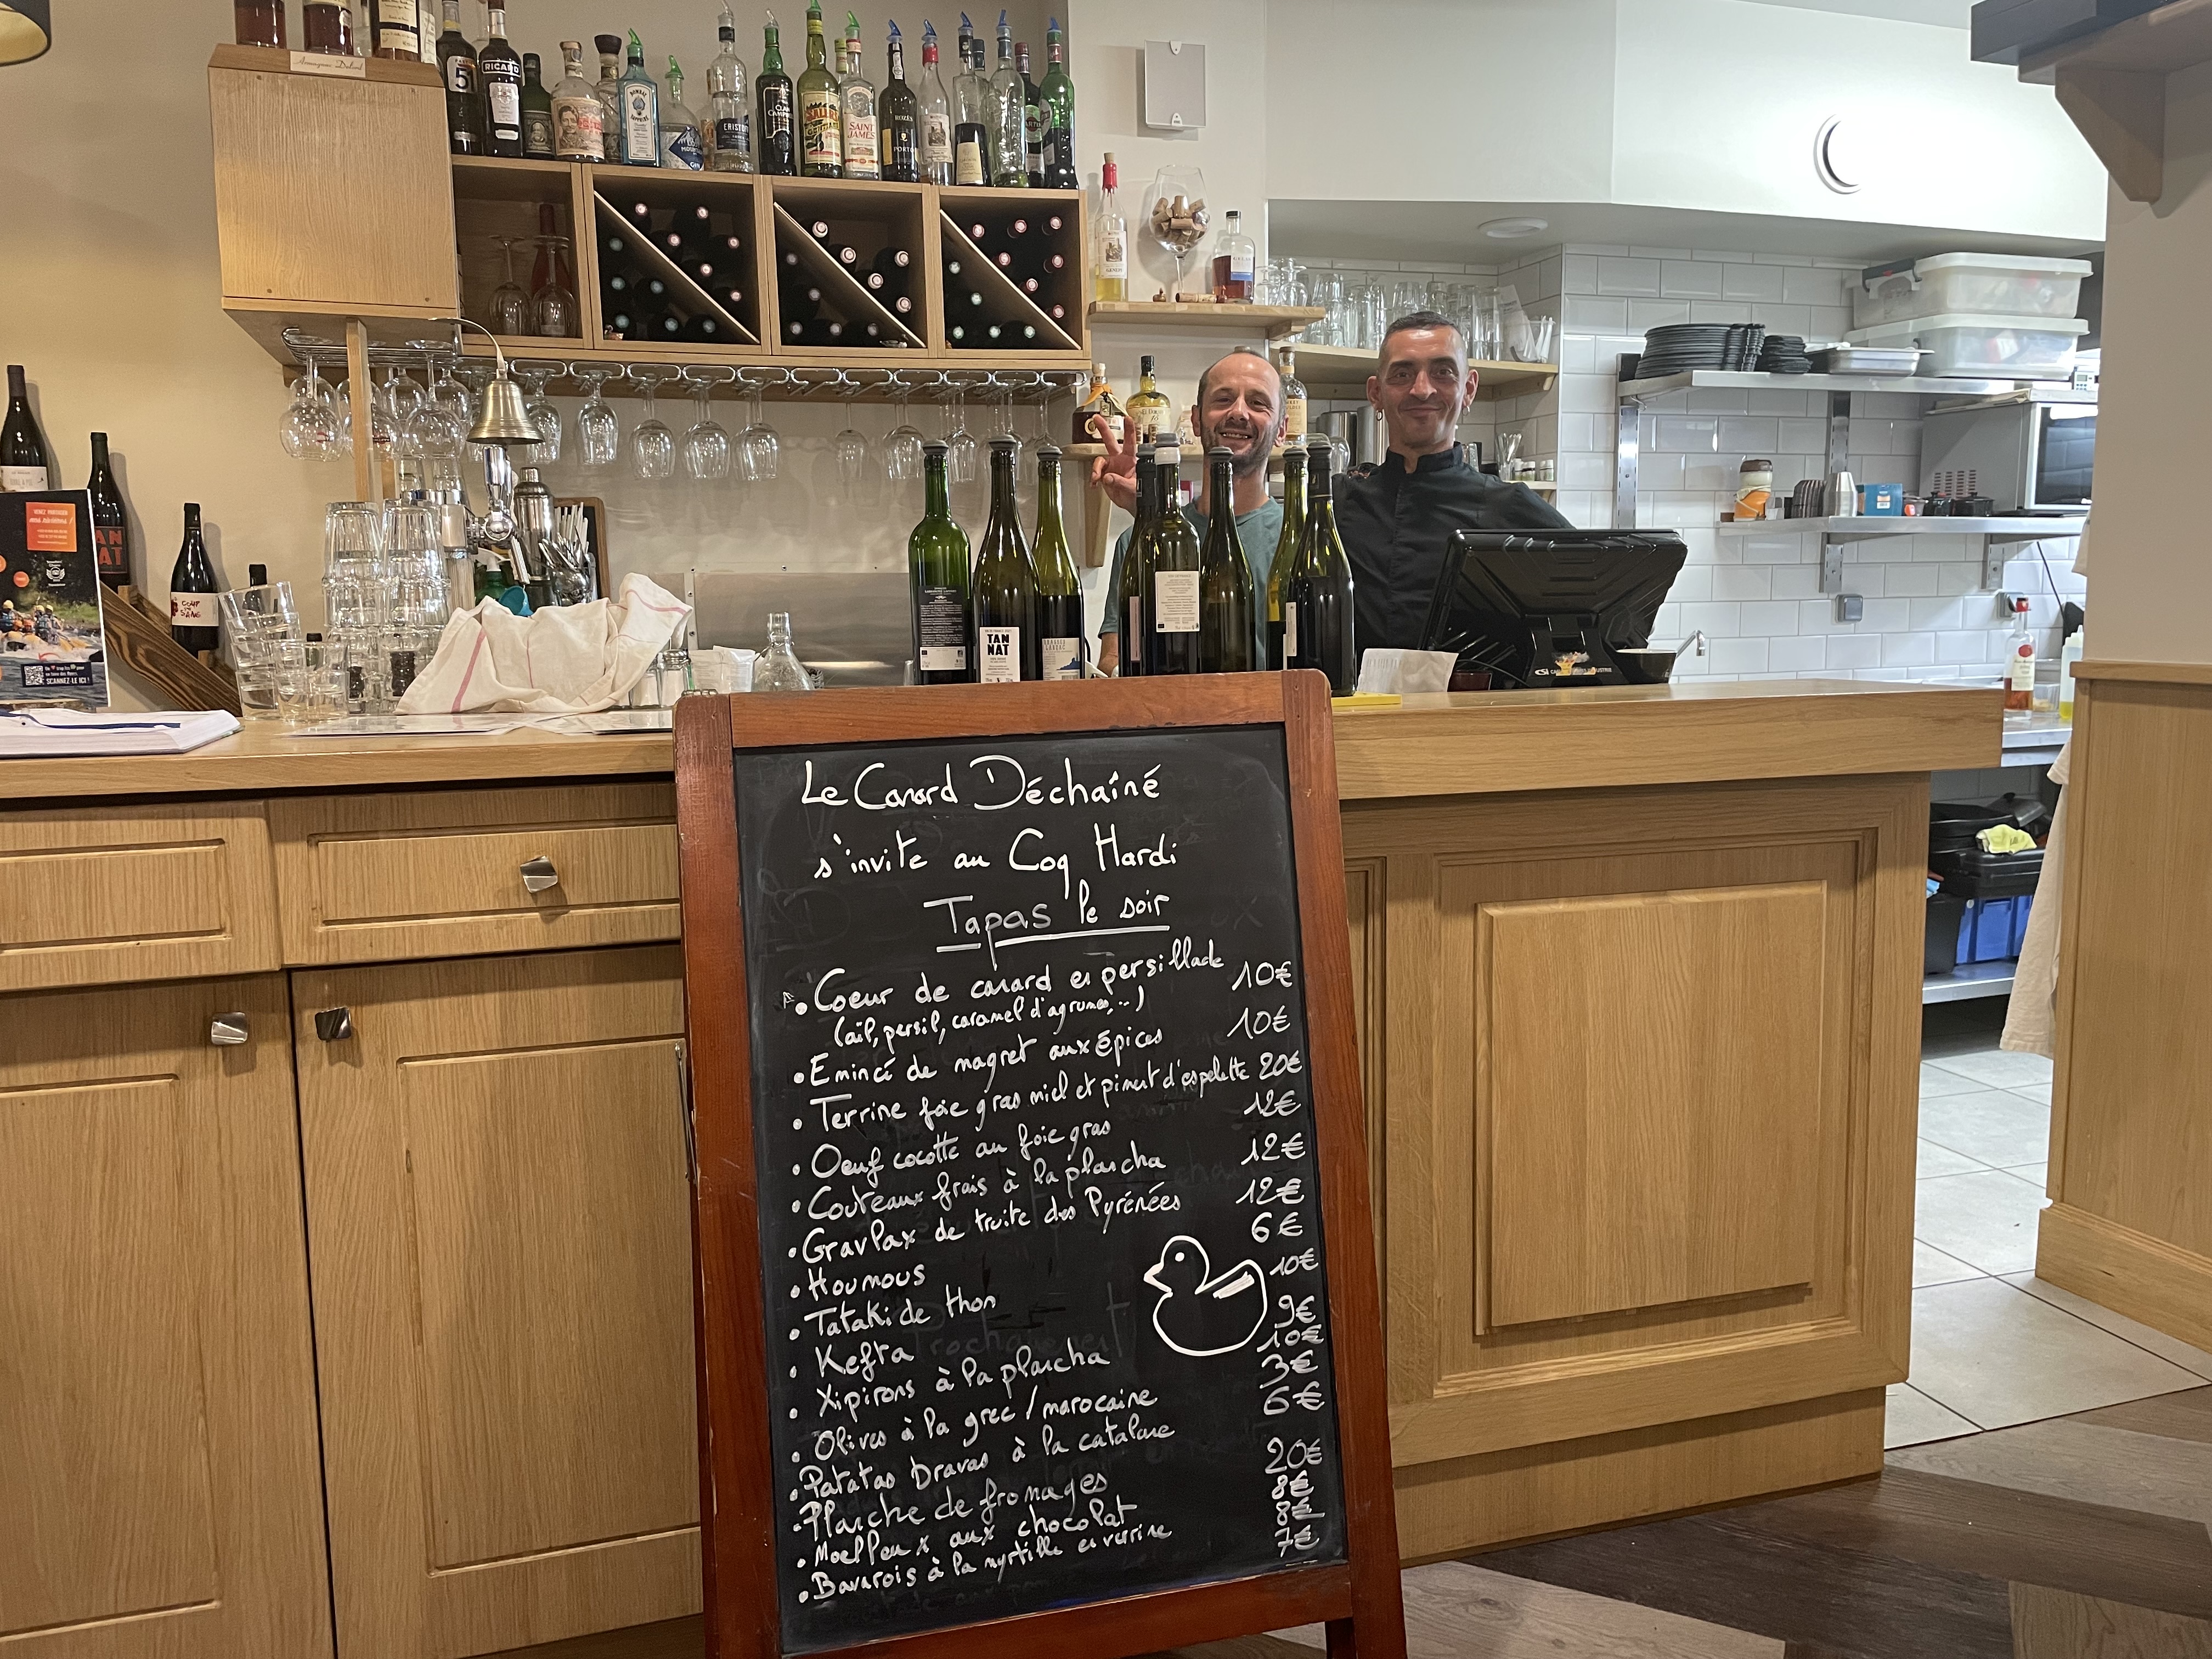 Armagnac Delord
5
RICARD
BOMBAY
SAPPHIRE
GIN
ERISTOFF
CLAN
CAMPBELL
SALERS
SAINT
JAMES
ROZÈS
PORTO
GÉNÉPI
TAN
NAT
COUP
DE
SANG
SCANNEZ LE ICI !
TAN
NAT
CSI
Le Canard Déchaîné
s'invite au Coq Hardi
Tapas le soir
• Coeur de canard en persillade 10€
(ail, persil, caramel d'agrumes,...)
• Emincé de magret aux épices 10€
• Terrine foie gras miel et piment d'espelette 20€
• Oeuf cocotte au foie gras 12€
• Couteaux frais à la plancha 12€
• Gravlax de truite des Pyrénées 12€
• Houmous 6€
• Tataki de thon 10€
• Kefta 9€
• Xipirons à la plancha 10€
• Olives à la grec / marocaine 3€
• Patatas bravas à la catalane 6€
• Planche de fromages 20€
• Moelleux aux chocolat 8€
8€
• Bavarois à la myrtille en verrine 7€